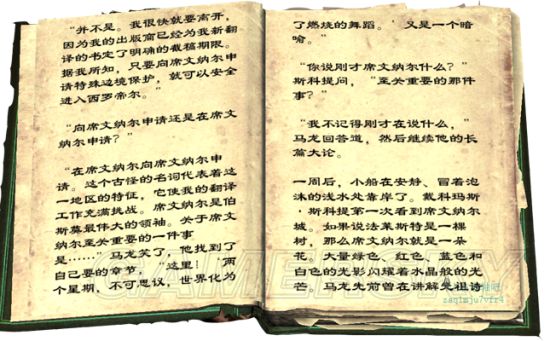 “并不是。我很快就要离开，
因为我的出版商已经为我新翻
译的书定了明确的截稿期限。
据我所知，只要向席文纳尔申
请特殊边境保护，就可以安全
进入西罗帝尔。”
“向席文纳尔申请还是在席文
纳尔申请？”
“在席文纳尔向席文纳尔申
请。这个古怪的名词代表着这
一地区的特征，它使我的翻译
工作充满挑战。席文纳尔是伯
斯莫最伟大的领袖。关于席文
纳尔至关重要的一件事
是……”马龙笑了，他找到了
自己要的章节，“这里！‘两
个星期，不可思议，世界化为
了燃烧的舞蹈。’又是一个暗
喻。”
“你说刚才席文纳尔什么？”
斯科提问，“至关重要的那件
事？”
“我不记得刚才在说什么，”
马龙回答道，然后继续他的长
篇大论。
一周后，小船在安静、冒着泡
沫的浅水处靠岸了。戴科玛斯
·斯科提第一次看到席文纳尔
城。如果说法莱斯特是一棵
树，那么席文纳尔就是一朵
花。大量绿色、红色、蓝色和
白色的光影闪耀着水晶般的光
芒。马龙先前曾在讲解先祖诗
GAMERSKY
zaq1mju7vfr4